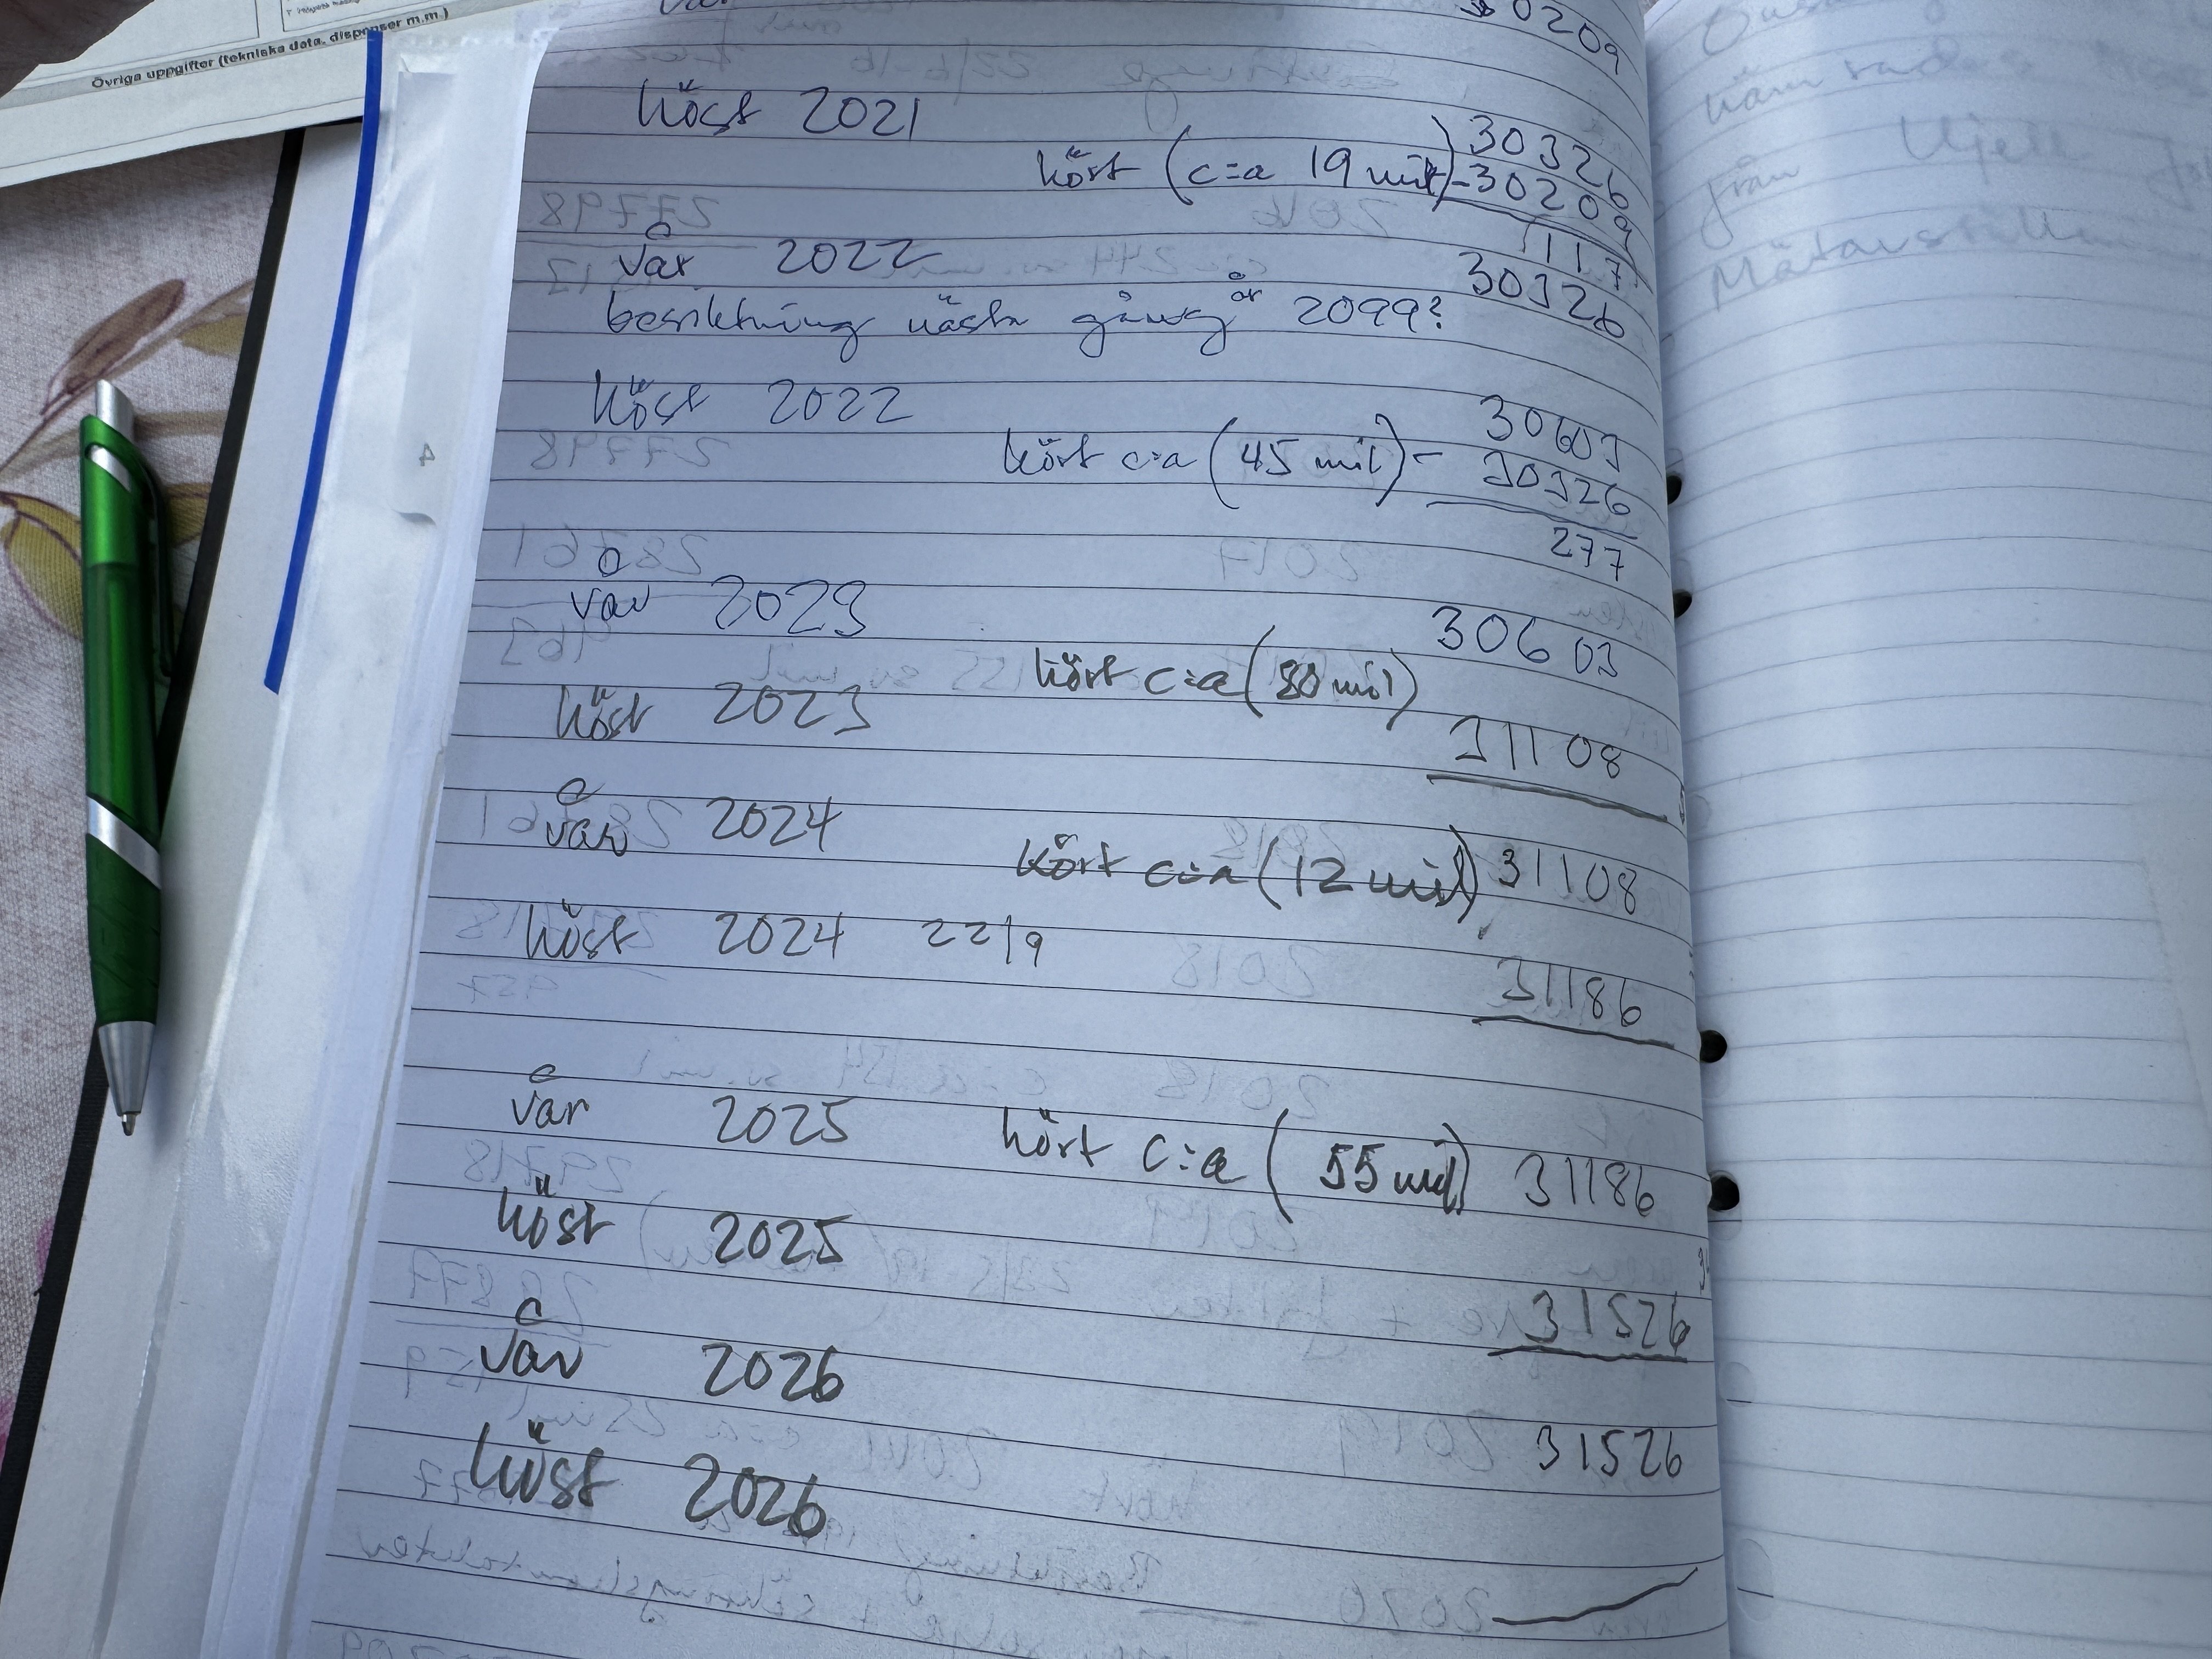 Övriga uppgifter (tekniska data, dispenser m.m.)
30209
höst 2021 30326
kört (c:a 19 mil) -30209
117
vår 2022 30326
besiktning nästa gång år 2099?
höst 2022 30603
kört c:a (45 mil) - 30326
277
vår 2023 30603
kört c:a (80 mil)
höst 2023 31108
vår 2024 31108
kört c:a (12 mil)
höst 2024 22/9 31186
vår 2025 kört c:a (55 mil) 31186
höst 2025 31526
vår 2026 31526
höst 2026
från
4